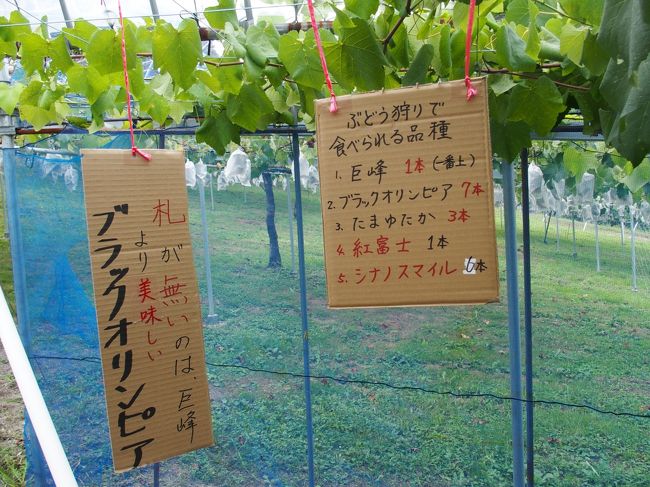 ぶどう狩りで
食べられる品種
1. 巨峰 1本(一番上)
2. ブラックオリンピア 7本
3. たまゆたか 3本
4. 紅富士 1本
5. シナノスマイル 6本
札が無いのは、巨峰
より美味しい
ブラックオリンピア